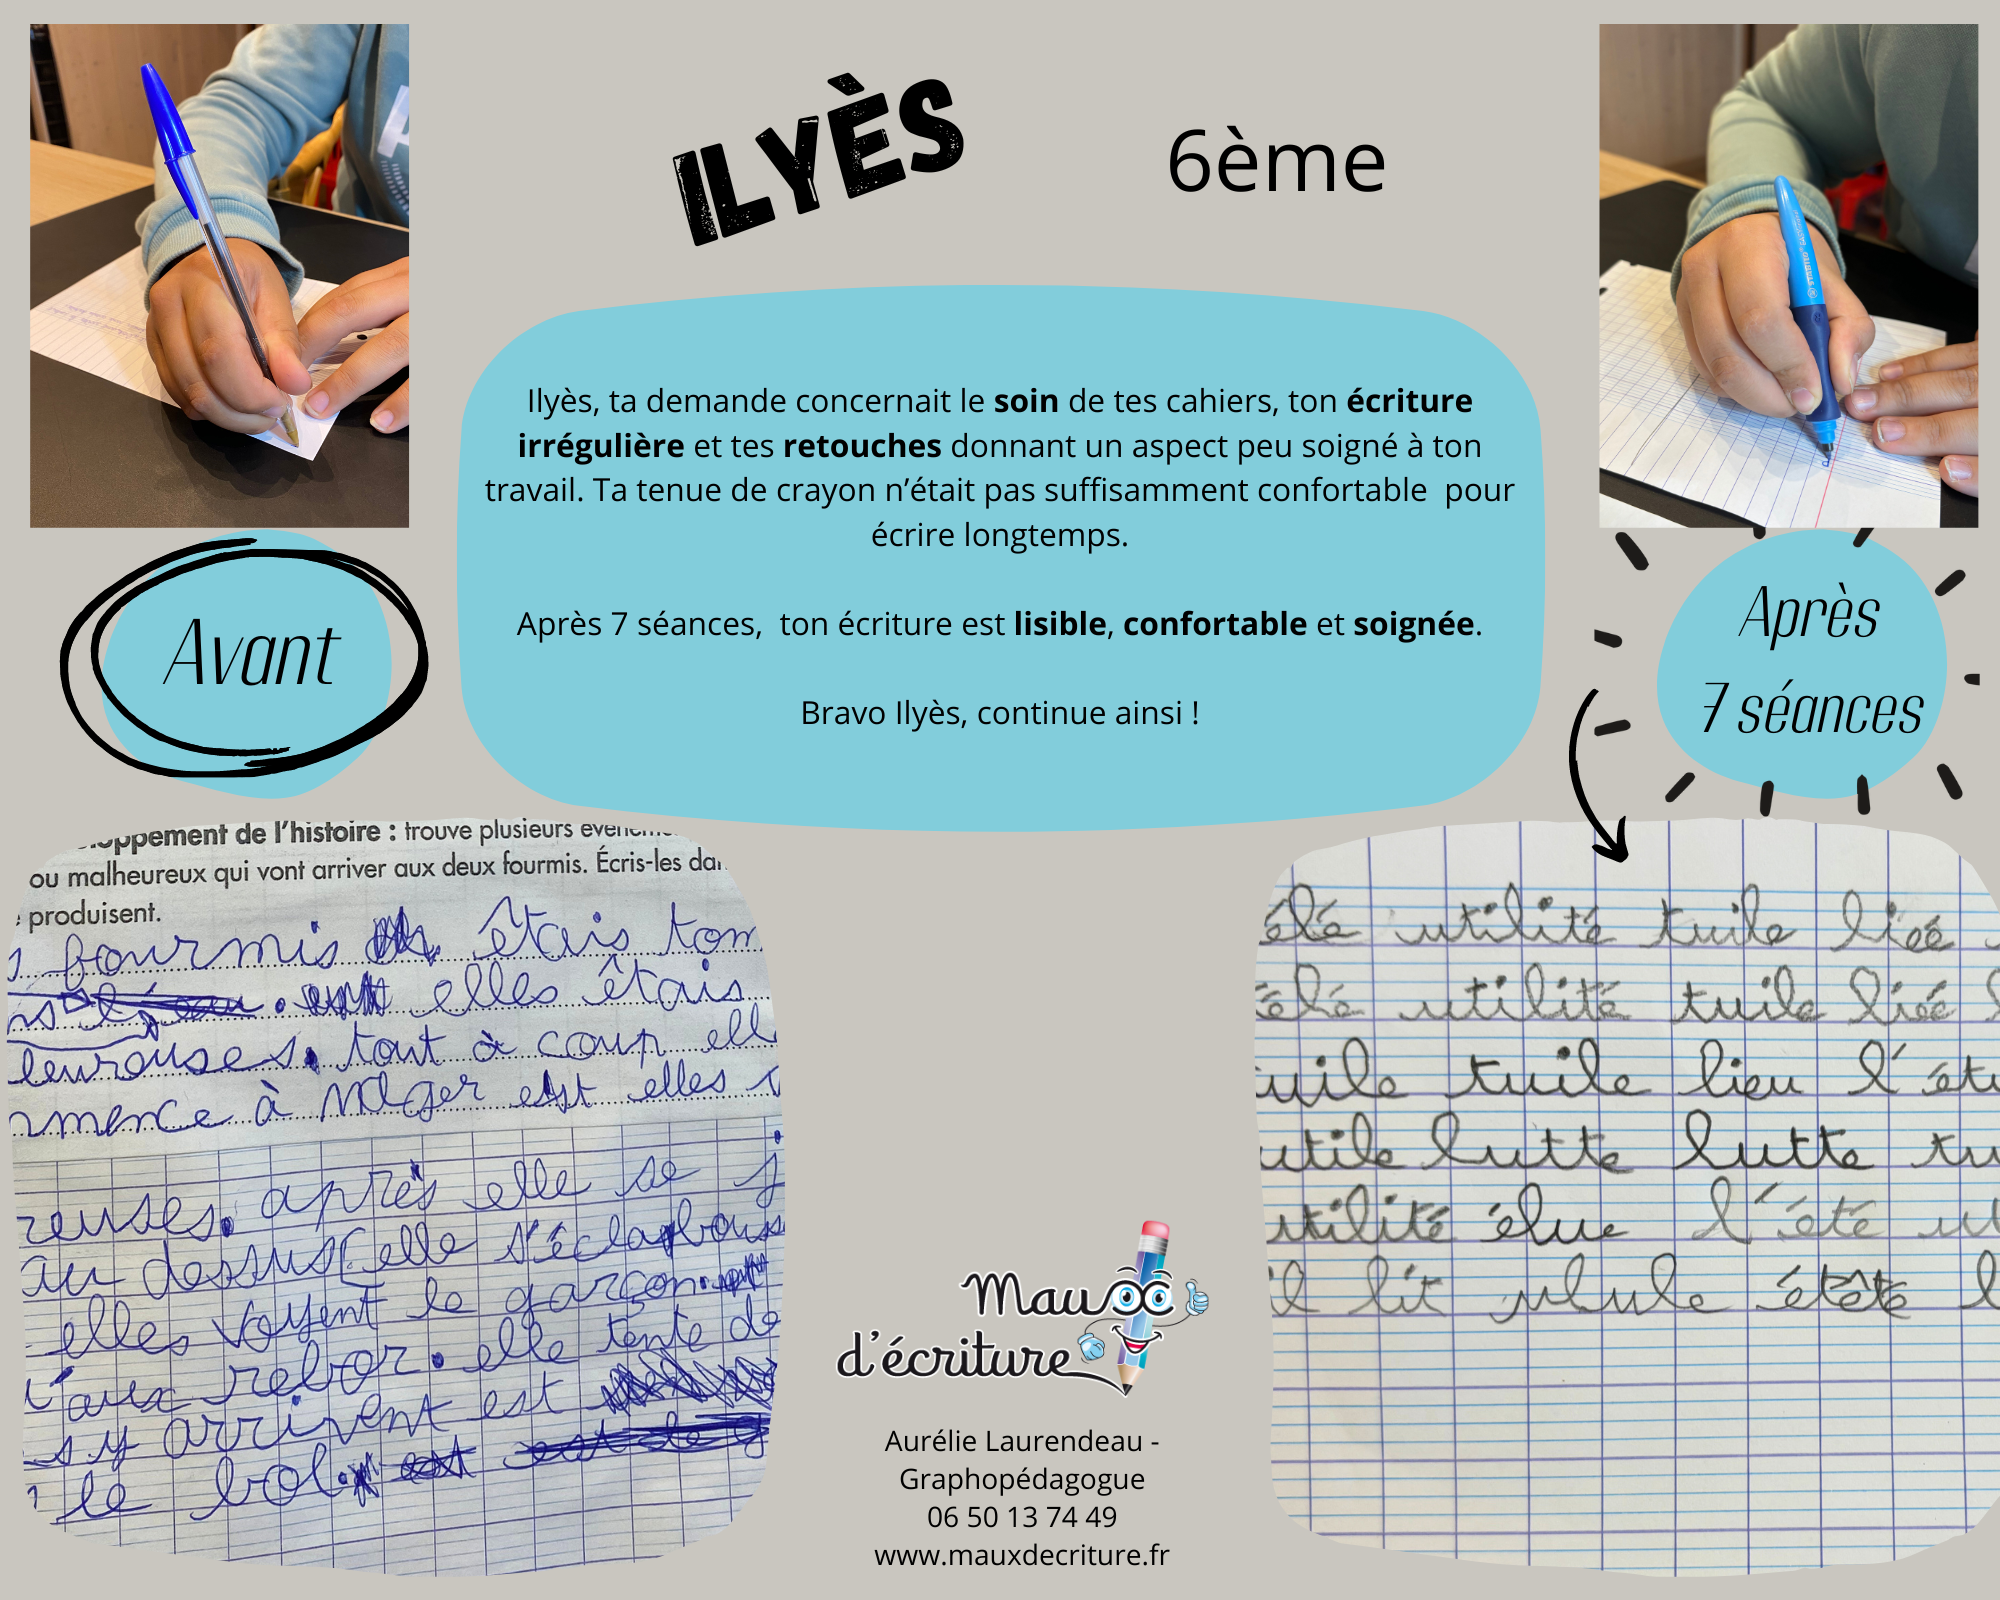 ILYÈS
6ème
Ilyès, ta demande concernait le soin de tes cahiers, ton écriture
irrégulière et tes retouches donnant un aspect peu soigné à ton
travail. Ta tenue de crayon n'était pas suffisamment confortable pour
écrire longtemps.
Après 7 séances, ton écriture est lisible, confortable et soignée.
Bravo Ilyès, continue ainsi !
Avant
Après
7 séances
STABILO
oppement de l'histoire : trouve plusieurs évén
ou malheureux qui vont arriver aux deux fourmis. Écris-les da
produisent.
s fourmis êtais tom
ns l'eau. elles êtais
leurouses. tout à coup ell
mmence à nager est elles
reuses. après elle se
au dessus elle s'éclabouss
elles voyent le garçon.
aux rebor. elle tente de
s y arrivent est
le bol. est de
élé utilité tuile liée
télé utilité tuile liée
tuile tuile lieu l'éte
utile lutte lutte tu
utilité élue l'été ut
il lit ulule étêté l
Maux
d'écriture
Aurélie Laurendeau -
Graphopédagogue
06 50 13 74 49
www.mauxdecriture.fr